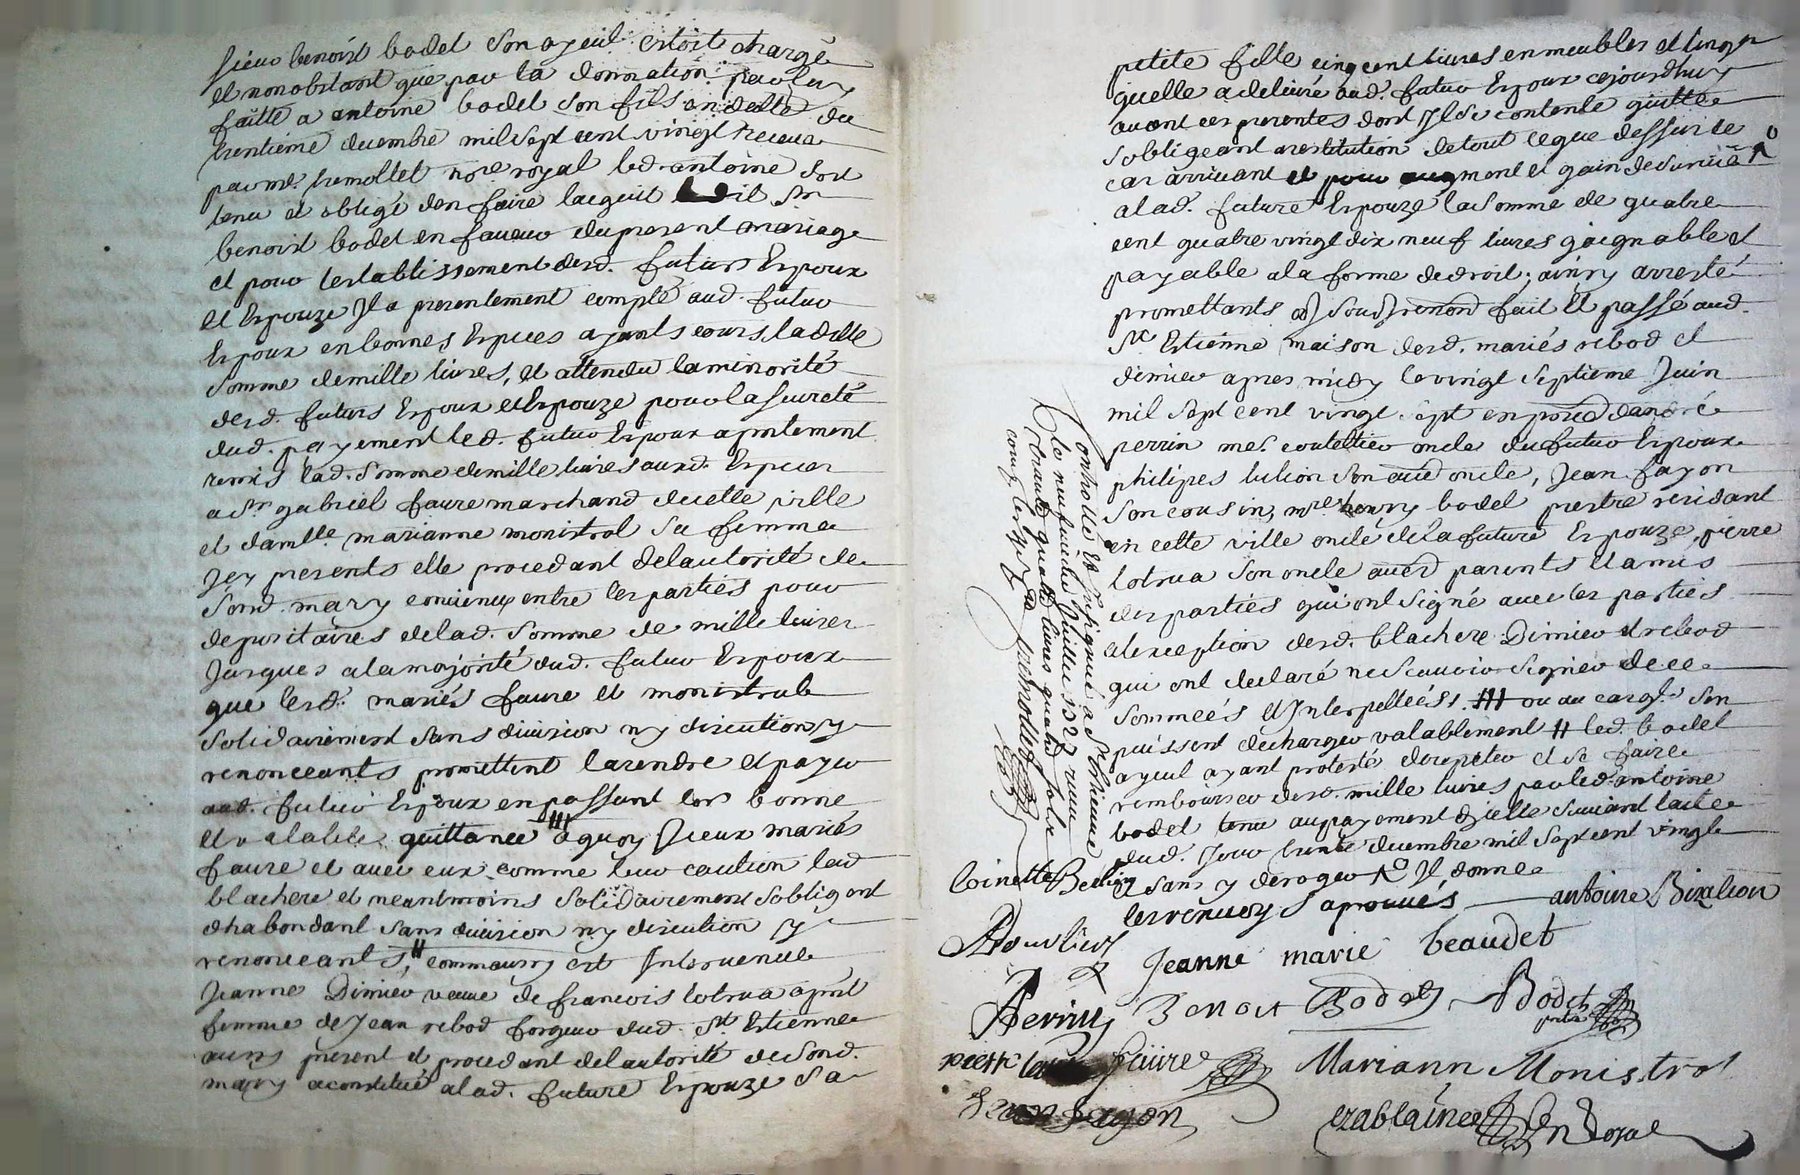 sieur benoist bodet son ayeul estoit chargé
et nonobstant que par la donnation par luy
faitte a antoine bodet son fils en datte du
trentieme decembre mil sept cent vingt
par me. tremollet nore royal led antoine soit
tenu et obligé den faire lacquit led. sr
benoist bodet en faveur du present mariage
et pour lestablissement desd. futurs Espoux
et Espouze Il a presentement compté aud. futur
Espoux en bonnes Espices ayants cours ladtte
somme de mille livres, et attendu la minorité
desd. futurs Espoux et Espouze pour la sureté
dud. payement led. futur Espoux a pntement
remis lad. somme de mille livres auxd. Espices
a sr gabriel faure marchand de cette ville
et damlle marianne monistrol sa femme
Icy presents elle procedant de lautorité de
sond. mary convenus entre les parties pour
depositaires de lad. somme de mille livres
Jusques a la majorité dud. futur Espoux
que lesd. mariés faure et monistrol
solidairement sans division ny discution y
renonceants promettent la rendre et payer
aud. futur Espoux en passant lors bonne
et valable quittance a quoy Iceux mariés
faure et avec eux comme leur caution led
blachere et neantmoins solidairement sobligent
dhabondant sans division ny discution y
renonceants, comme aussy est Intervenue
Jeanne Dimier veuve de francois lotrua apnt
femme de Jean rebod forgeur dud. St Estienne
aussy present et procedant de lautorité de sond.
mary a constitué a lad. future Espouze sa
petite fille cinq cent livres en meubles et linges
quelle a delivré aud. futur Espoux cejourdhuy
avant ces presentes dont Il se contente quitte
sobligeant a restitution de tout ce que dessus le
cas arrivant et pour augment et gain de survie
a lad. future Espouze la somme de quatre
cent quatre vingt dix neuf livres gaignable et
payable a la forme de droit; ainsy arresté
promettants obl soub renond fait Et passé aud.
St Estienne maison desd. mariés rebod et
dimier apres midy le vingt septieme Juin
mil sept cent vingt sept en pnced dandré
perrin me. coutellier oncle du futur Espoux
philipes lulion son autre oncle, Jean fayon
son cousin, mre henry bodet prestre residant
en cette ville oncle de la future Espouze, pierre
lotrua son oncle autres parents et amis
des parties qui ont signé avec les parties
a lexception desd. blachere Dimier et rebod
qui ont declaré ne scavoir signer de ce
sommées et Interpellées. ou au cas son
puissent decharger valablement led. bodet
ayeul ayant protesté de repeter et se faire
rembourser desd. mille livres par led. antoine
bodet tenu au payement dicelle suivant lacte
dud. Jour trente decembre mil sept cent vingt
sans y deroger Il donne
les renvoys saprouvés
Controllé Et Insinué a St Estienne
le neuf Juillet 1727 receu
trante quatre livres quatre sols
compris les
tremollet
antoine Bixalion
Jeanne marie beaudet
Perrin Benoit Bodet Bodet
ptre
pierre faure Mariann Monistrol
Jean fayon